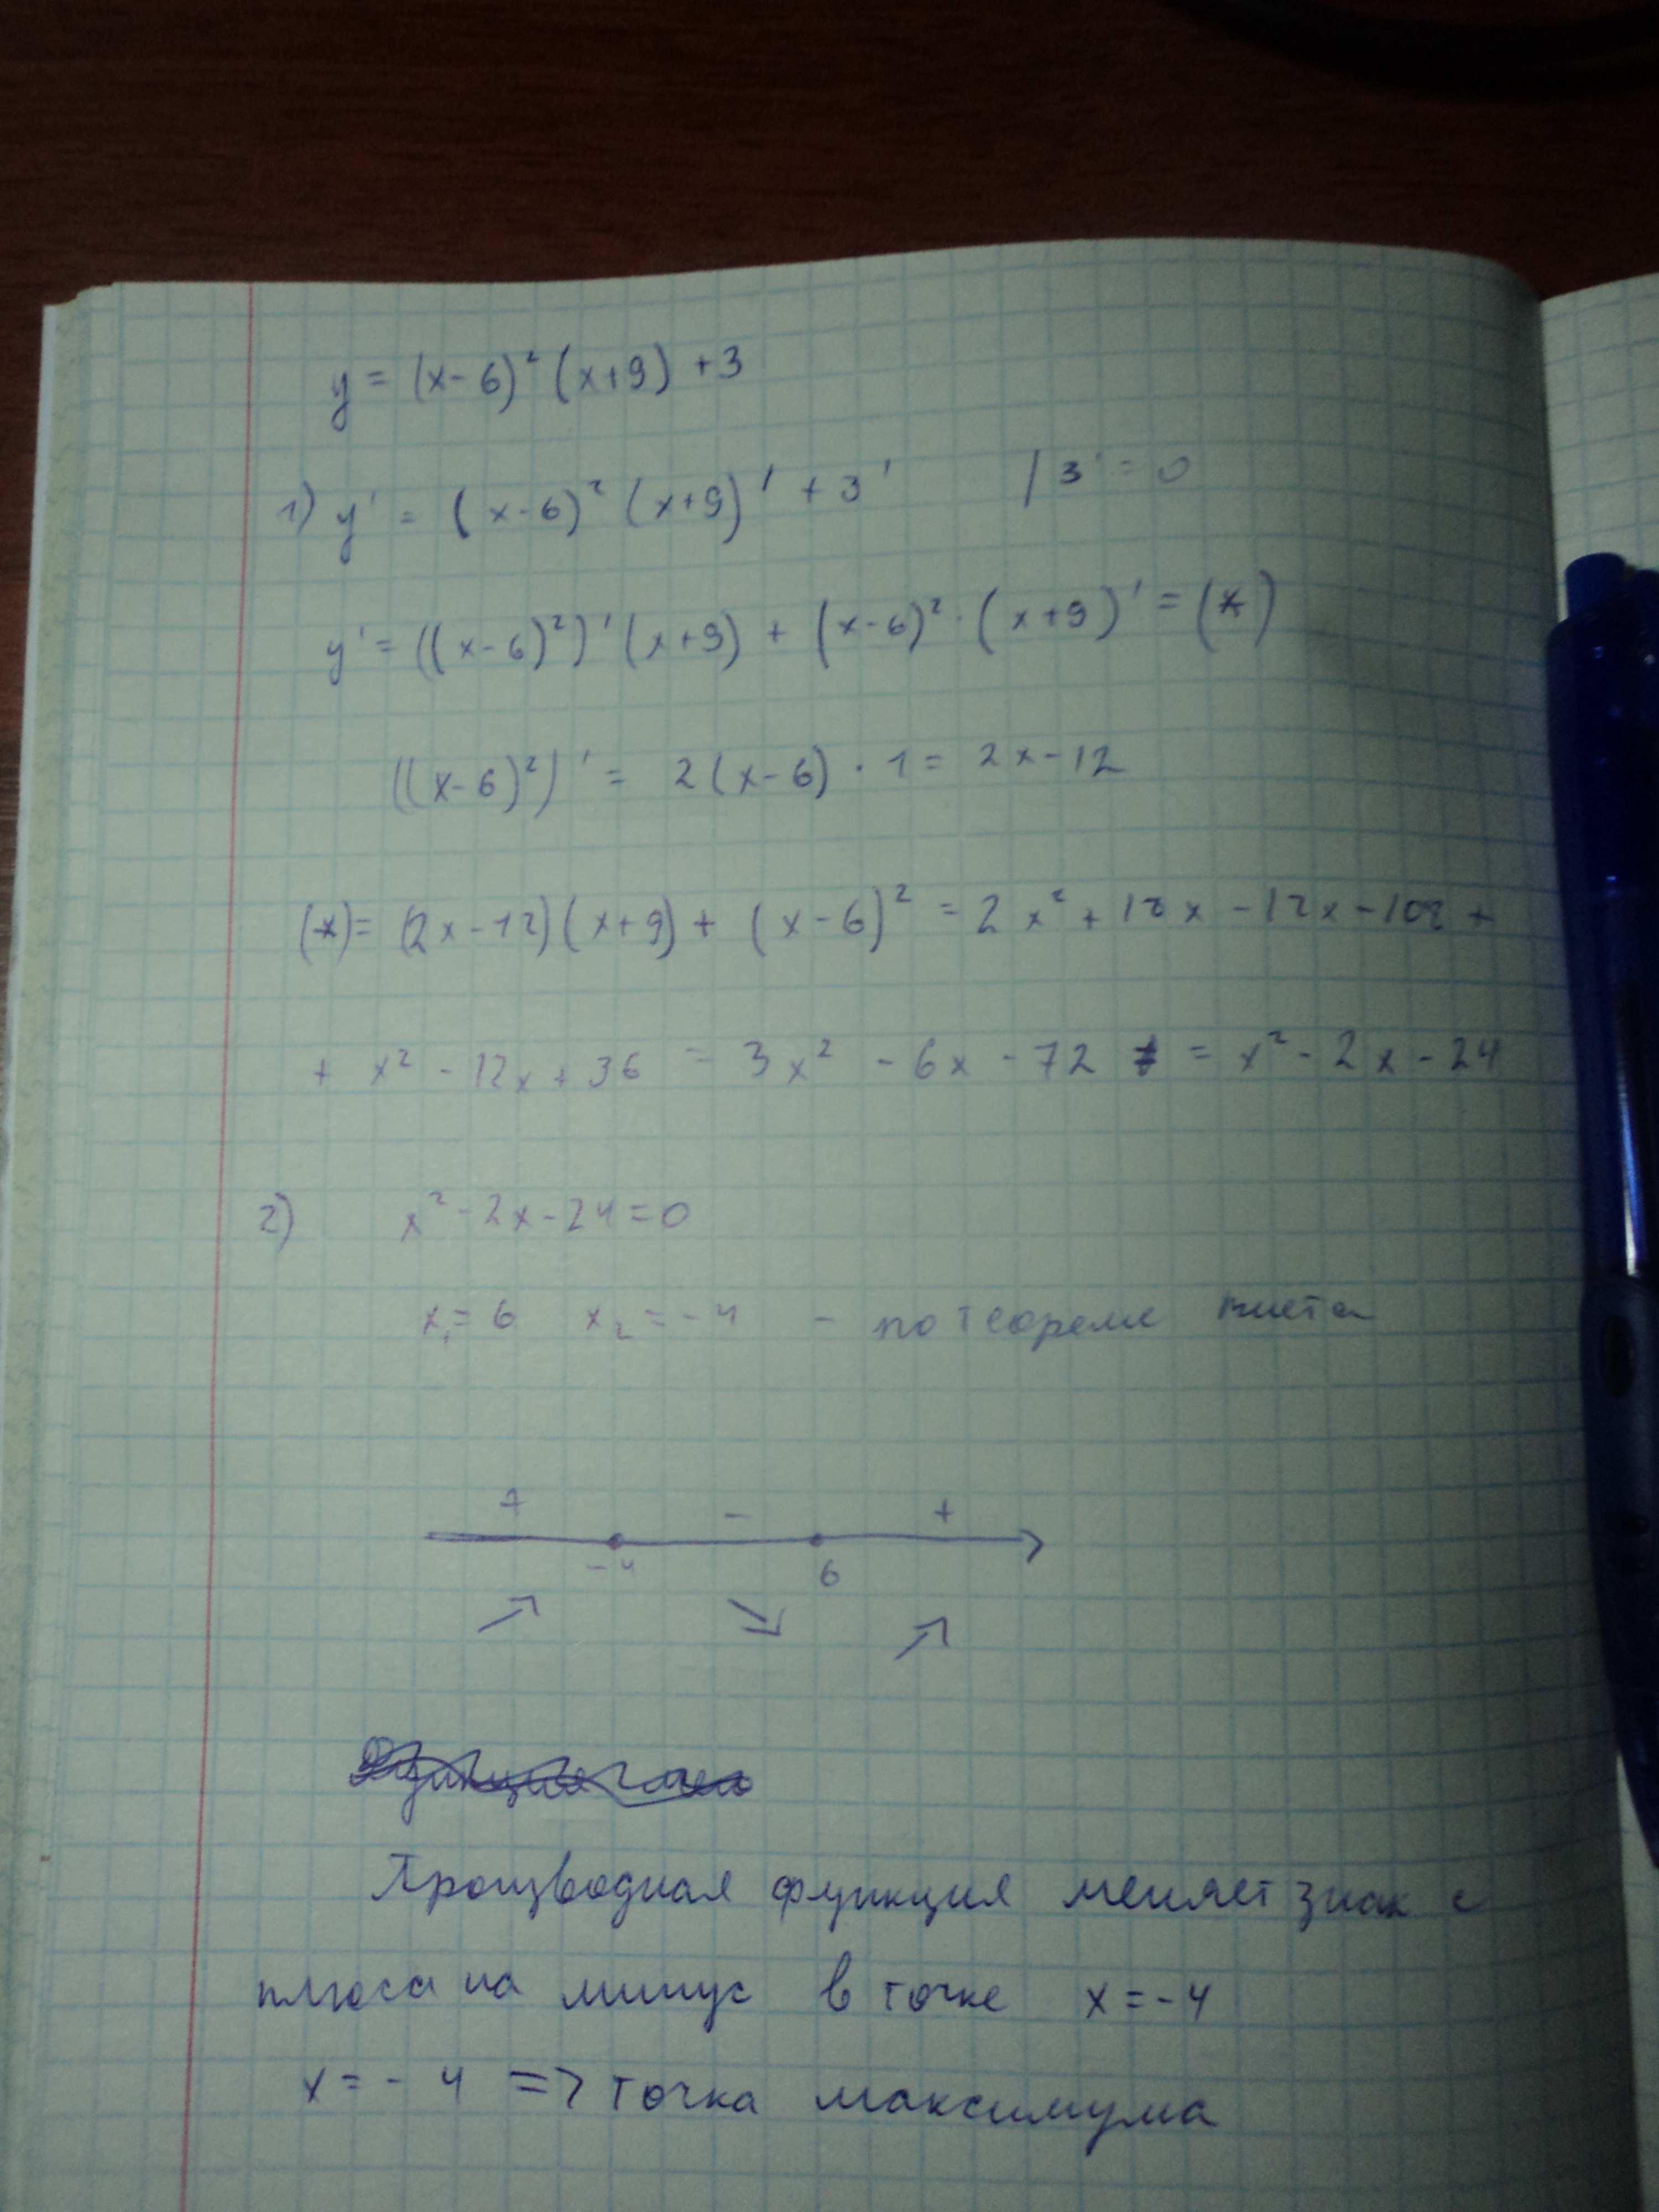 y = (x-6)² (x+9) +3
1) y' = (x-6)² (x+9)' + 3' / 3' = 0
y' = ((x-6)²)' (x+9) + (x-6)² · (x+9)' = (*)
((x-6)²)' = 2(x-6) · 1 = 2x-12
(*)= (2x-12)(x+9) + (x-6)² = 2x² + 18x - 12x - 108 +
+ x² - 12x + 36 = 3x² - 6x - 72 = x² - 2x - 24
2) x² - 2x - 24 = 0
x₁ = 6 x₂ = -4 - по теореме виета
+ - +
-4 6
Производная функция меняет знак с
плюса на минус в точке x = -4
x = -4 => точка максимума